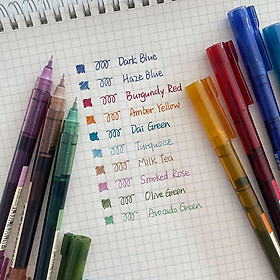 Dark Blue
Haze Blue
Burgundy Red
Amber Yellow
Dai Green
Turquoise
Milk Tea
Smoked Rose
Olive Green
Avocado Green